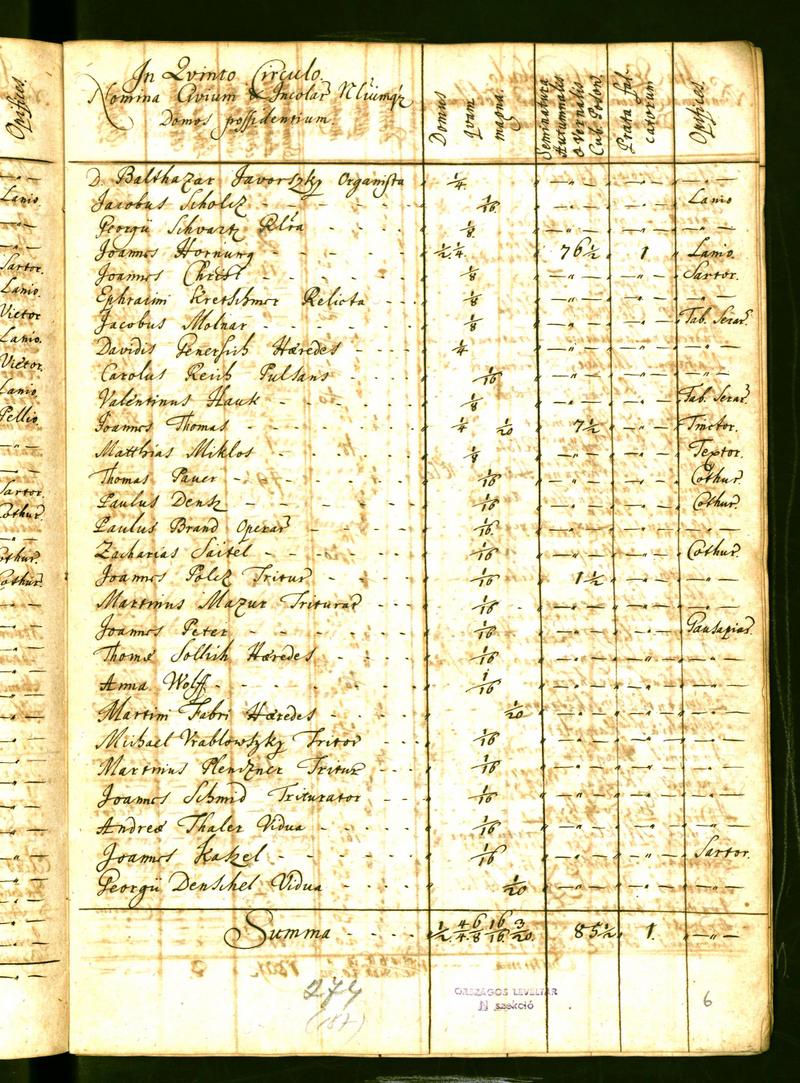 In Qvinto Circulo
Nomina Civium & Incolar
Domos possidentium
Domus qvam magna
Seminatura Autumnalis & Vernalis Cub. Poson
Prata Fal- catorum
Opifices
D. Balthazar Javorszky Organista - 1/4 " "
Jacobus Scholcz - 1/16 " " Lanio
Georgii Schvartz Rlta - 1/8 " "
Joannes Hornung - 1/2 1/4 76 1/2 1 Lanio.
Joannes Christ - 1/8 " " Sartor.
Ephraim Kretschmer Relicta - 1/8 " "
Jacobus Molnar - 1/8 " " Fab. Serar.
Davidis Genersich Hæredes - 1/4 " "
Carolus Reich Pulsans - 1/16 " "
Valentinus Hauk - 1/8 " " Fab. Serar.
Joannes Thomas - 1/4 1/20 7 1/2 " Tinctor.
Matthias Miklos - 1/8 " " Textor.
Thomas Pauer - 1/16 " " Cothur.
Paulus Densz - 1/16 " " Cothur.
Paulus Brand Operar - 1/16 " "
Zacharias Saitel - 1/16 " " Cothur.
Joannes Polcz Tritur - 1/16 1 1/2 "
Martinus Mazur Triturar - 1/16 " "
Joannes Peter - 1/16 " " Pausapiar.
Thomæ Soltish Hæredes - 1/16 " "
Anna Wolff - 1/16 " "
Martini Fabri Hæredes - 1/20 " "
Michael Vrablowszky Tritor - 1/16 " "
Martinus Plenizner Tritur - 1/16 " "
Joannes Schmid Triturator - 1/16 " "
Andreæ Thaler Vidua - 1/16 " "
Joannes Kaszel - 1/16 " " Sartor.
Georgii Denschel Vidua - 1/20 " "
Summa - 1/2 4/4 6/8 16/16 3/20 85 1/2 1.
274
(187)
ORSZÁGOS LEVÉLTÁR
N szekció
6
Opifices
Lanio
Sartor.
Lanio.
Vietor
Lanio.
Vietor.
Lanio
Pellio
Sartor.
Cothur.
Cothur.
Cothur.